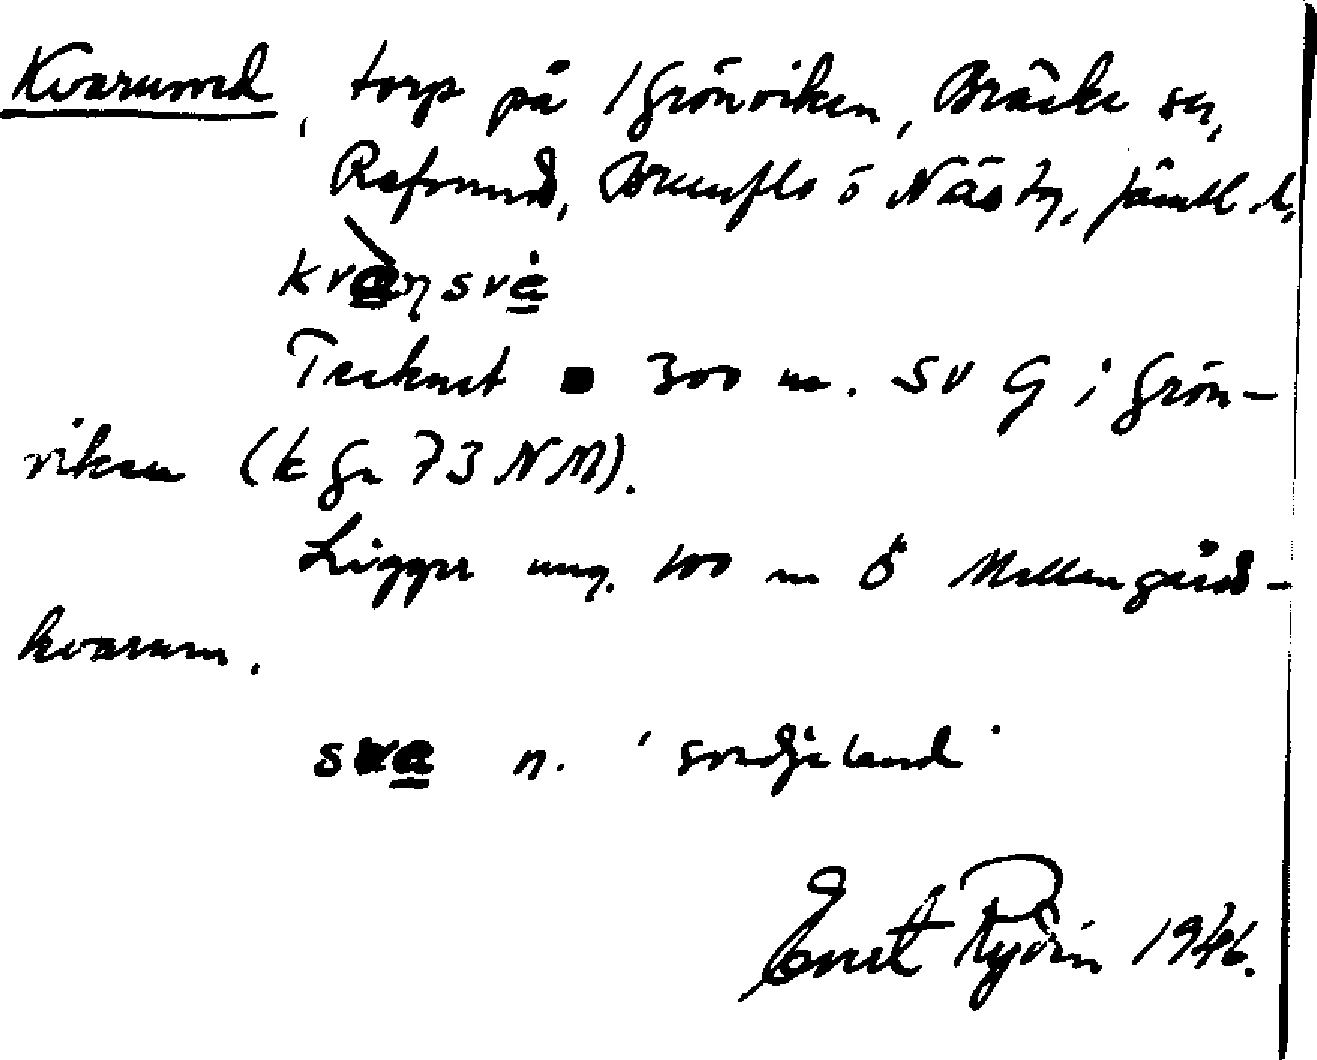 Kvarnsved, torp på 1 Grönviken, Bräcke sn,
Refsunds, Brunflo o Näs tg, Jämtl l,
Tecknat ■ 300 m. SV G i Grön-
viken (k Gn 73 NM).
Ligger ung. 100 m Ö Mellangårds-
kvarnen.
sve n. ' svedjeland '
Ernst Rydin 1946.